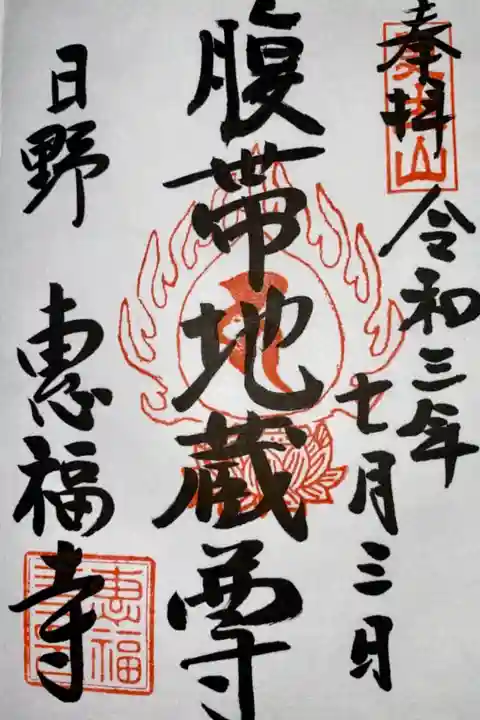 奉拝
令和三年
七月三日
腹帯地蔵尊
日野 惠福寺
惠福